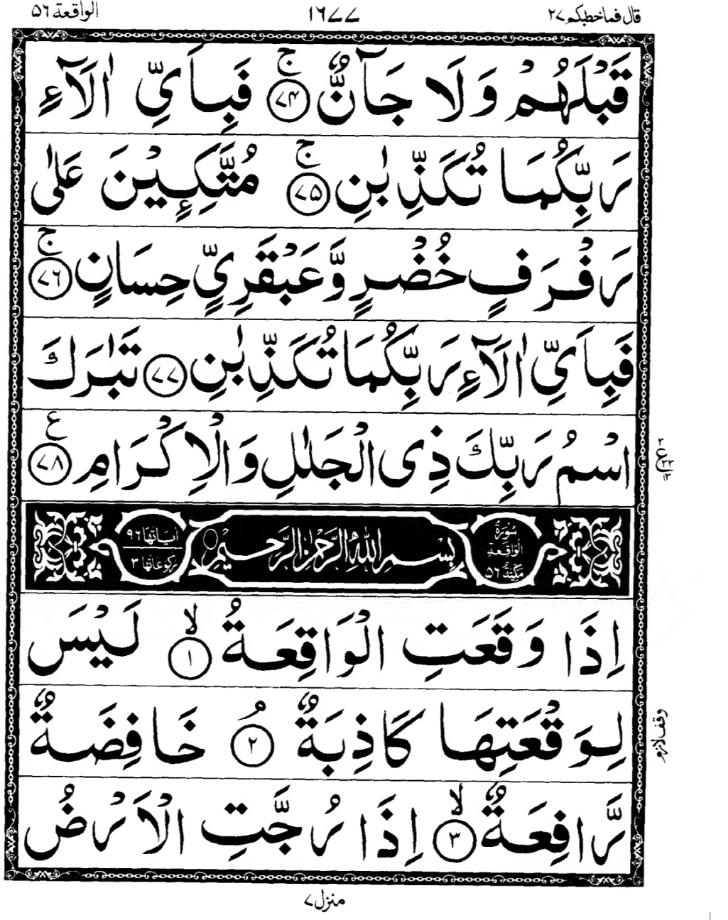 قال فماخطبكم ٢٧ ١٦٧٧ الواقعة ٥٦
قَبْلَهُمْ وَلَا جَآنٌّ ۚ﴿٧٤﴾ فَبِاَيِّ اٰلَآءِ
رَبِّكُمَا تُكَذِّبٰنِ ۚ﴿٧٥﴾ مُتَّكِـِٕيْنَ عَلٰى
رَفْرَفٍ خُضْرٍ وَّعَبْقَرِيٍّ حِسَانٍ ۚ﴿٧٦﴾
فَبِاَيِّ اٰلَآءِ رَبِّكُمَا تُكَذِّبٰنِ ﴿٧٧﴾ تَبٰرَكَ
اسْمُ رَبِّكَ ذِى الْجَلٰلِ وَالْاِكْرَامِ ﴿٧٨﴾ ع
سُوْرَةُ الْوَاقِعَةِ مَكِّيَّةٌ ٥٦ بِسْمِ اللهِ الرَّحْمٰنِ الرَّحِيْمِ اٰيَاتُهَا ٩٦ رُكُوْعَاتُهَا ٣
اِذَا وَقَعَتِ الْوَاقِعَةُ ۙ﴿١﴾ لَيْسَ
لِوَقْعَتِهَا كَاذِبَةٌ ۘ﴿٢﴾ خَافِضَةٌ
وقف لازم
رَّافِعَةٌ ۙ﴿٣﴾ اِذَا رُجَّتِ الْاَرْضُ
منزل ٧